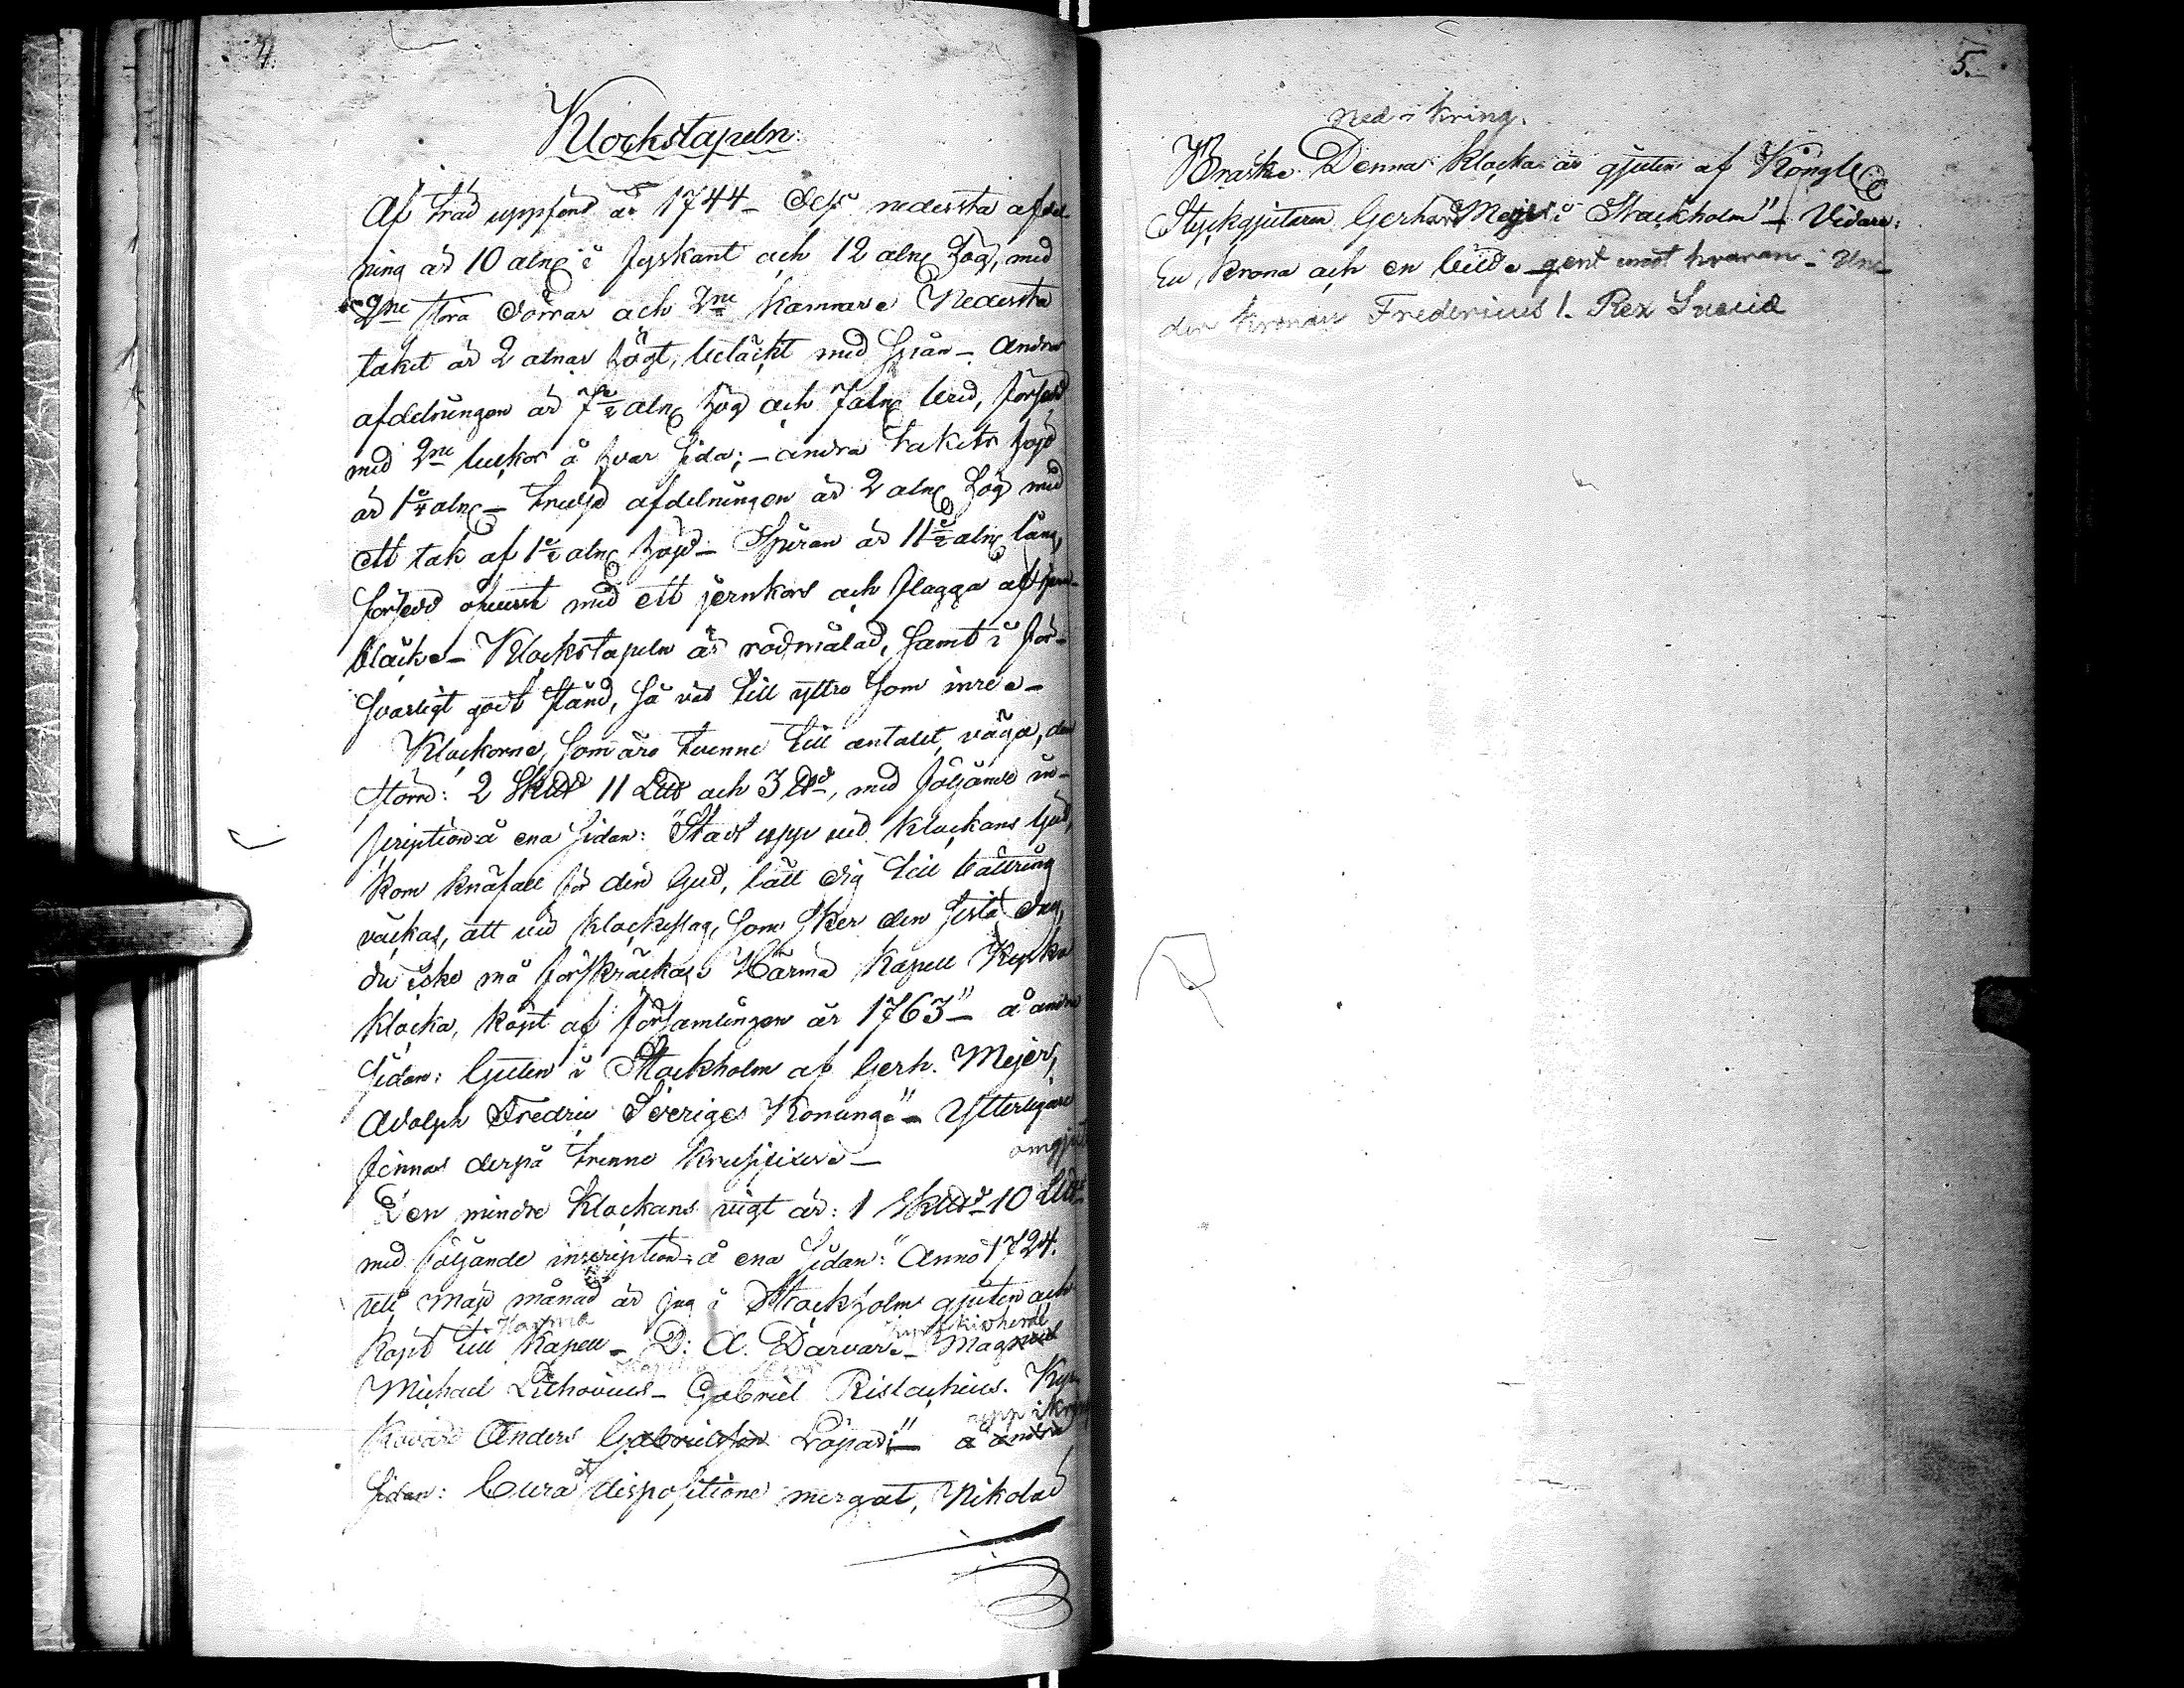 4.
Klockstapeln.
Af träd uppförd år 1744 - Dess nedersta afdel
ning är 10 alnr i fyrkant och 12 alnr hög, med
2ne stora dörrar och 2ne kamrar. Nedersta
taket är 2 alnar högt, betäckt med spån - Andra
afdelningen är 7 1/2 alnr hög och 7 alnr bred, försedd
med 2ne luckor å hvar sida; - andra takets höjd
är 1 1/4 alnr - Tredje afdelningen är 2 alnr hög med
ett tak af 1 1/2 alnr höjd - Spiran är 11 1/2 alnr lång,
försedd öfverst med ett jernkors och flagga af jern-
bläck. - Klockstapeln är rödmålad, samt i för-
svarligt godt stånd, så väl till yttre som inre. -
Klockorne, som äro tvenne till antalet, väga, den
större: 2 Skltt 11 Ltt och 3 tt, med följande in-
scription å ena sidan: "Statt upp vid klockans ljud,
kom knäfall för din Gud, lått dig till bättring
väckas, att vid klockeslag, som sker den sista dag,
du icke må förskräckas. Härmä Kapell Kyrko
klocka, köpt af församlingen år 1763" - å andra
sidan: Guten i Stockholm af Gerh. Mejer,
Adolph Fredric Sveriges Konung." - Ytterligare
finnas derpå trenne krusifixer. -
omgju
Den mindre klockans vigt är: 1 Skltt 10 Ltt
med följande inscription: å ena sidan: "Anno 1724.
uti maji månad är jag i Stockholm gjuten och
Harma
köpt till Kapell - D: A. Darvar. - Mag
kyrkioherde
Michael Lithovius - Gabriel Rislachius. Kyr
kovärd Anders Gabrielsson Löpar" - å andra
upp ikring
sidan: Cura et dispositione mergat, Nikolai
5.
Ned i kring.
Braske. Denna klocka är gjuten af Kongl.
Styckgjutaren Gerhard Meyer i Stockholm" - Vidare:
En krona och en bild gent emot hvaran - Un-
der kronan Fredericus I. Rex Sveciæ